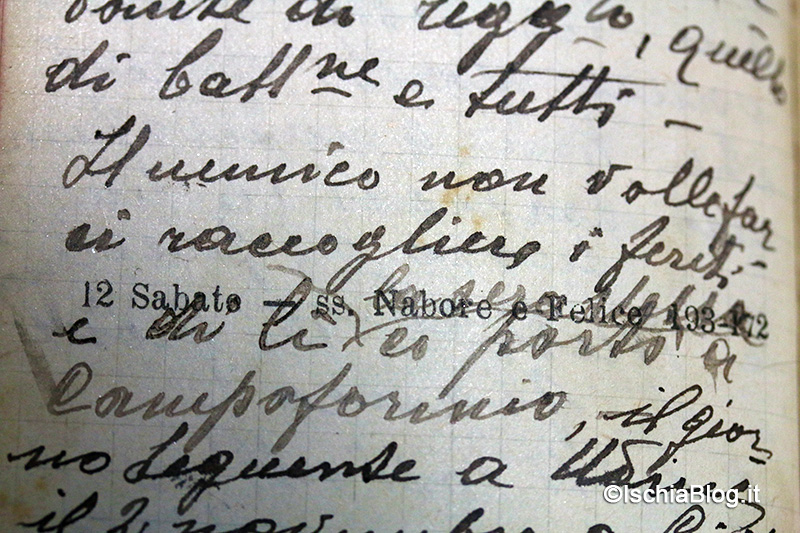 di regalo, quello
di Battne e tutti -
Il nemico non volle far
ci raccogliere i feriti.
12 Sabato — ss. Nabore e Felice 193-172
e di lì ci portò a
Campoformio, il gior-
no seguente a Udine
il 2 novembre a
©IschiaBlog.it